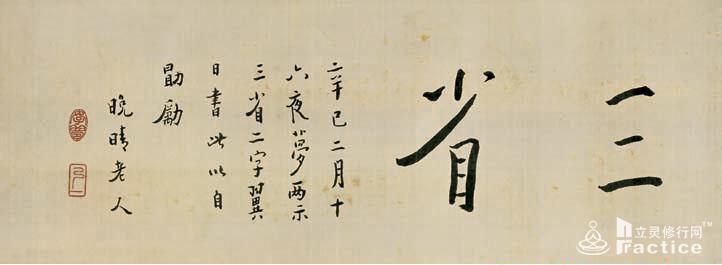 三省
辛巳二月十
六夜夢兩示
三省二字翼
日書此以自
勖勵
晚晴老人
立灵修行网™
Practice